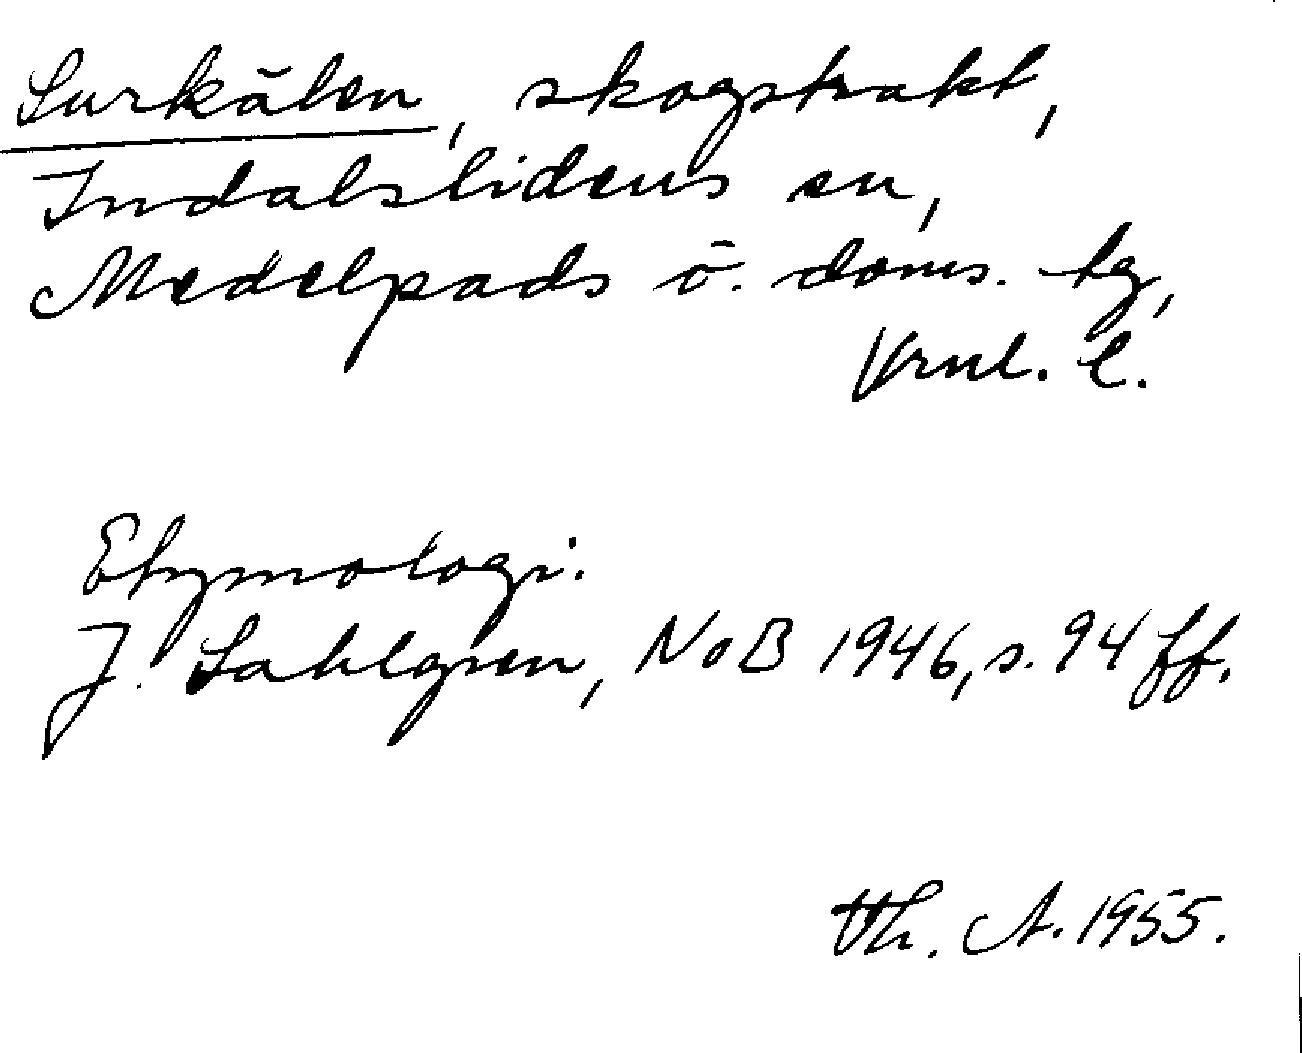 Surkälen, skogstrakt,
Indalslidens sn,
Medelpads ö. doms. tg,
Vrnl. l.
Etymologi:
J. Sahlgren, NoB 1946, s. 94 ff.
Th. A. 1955.